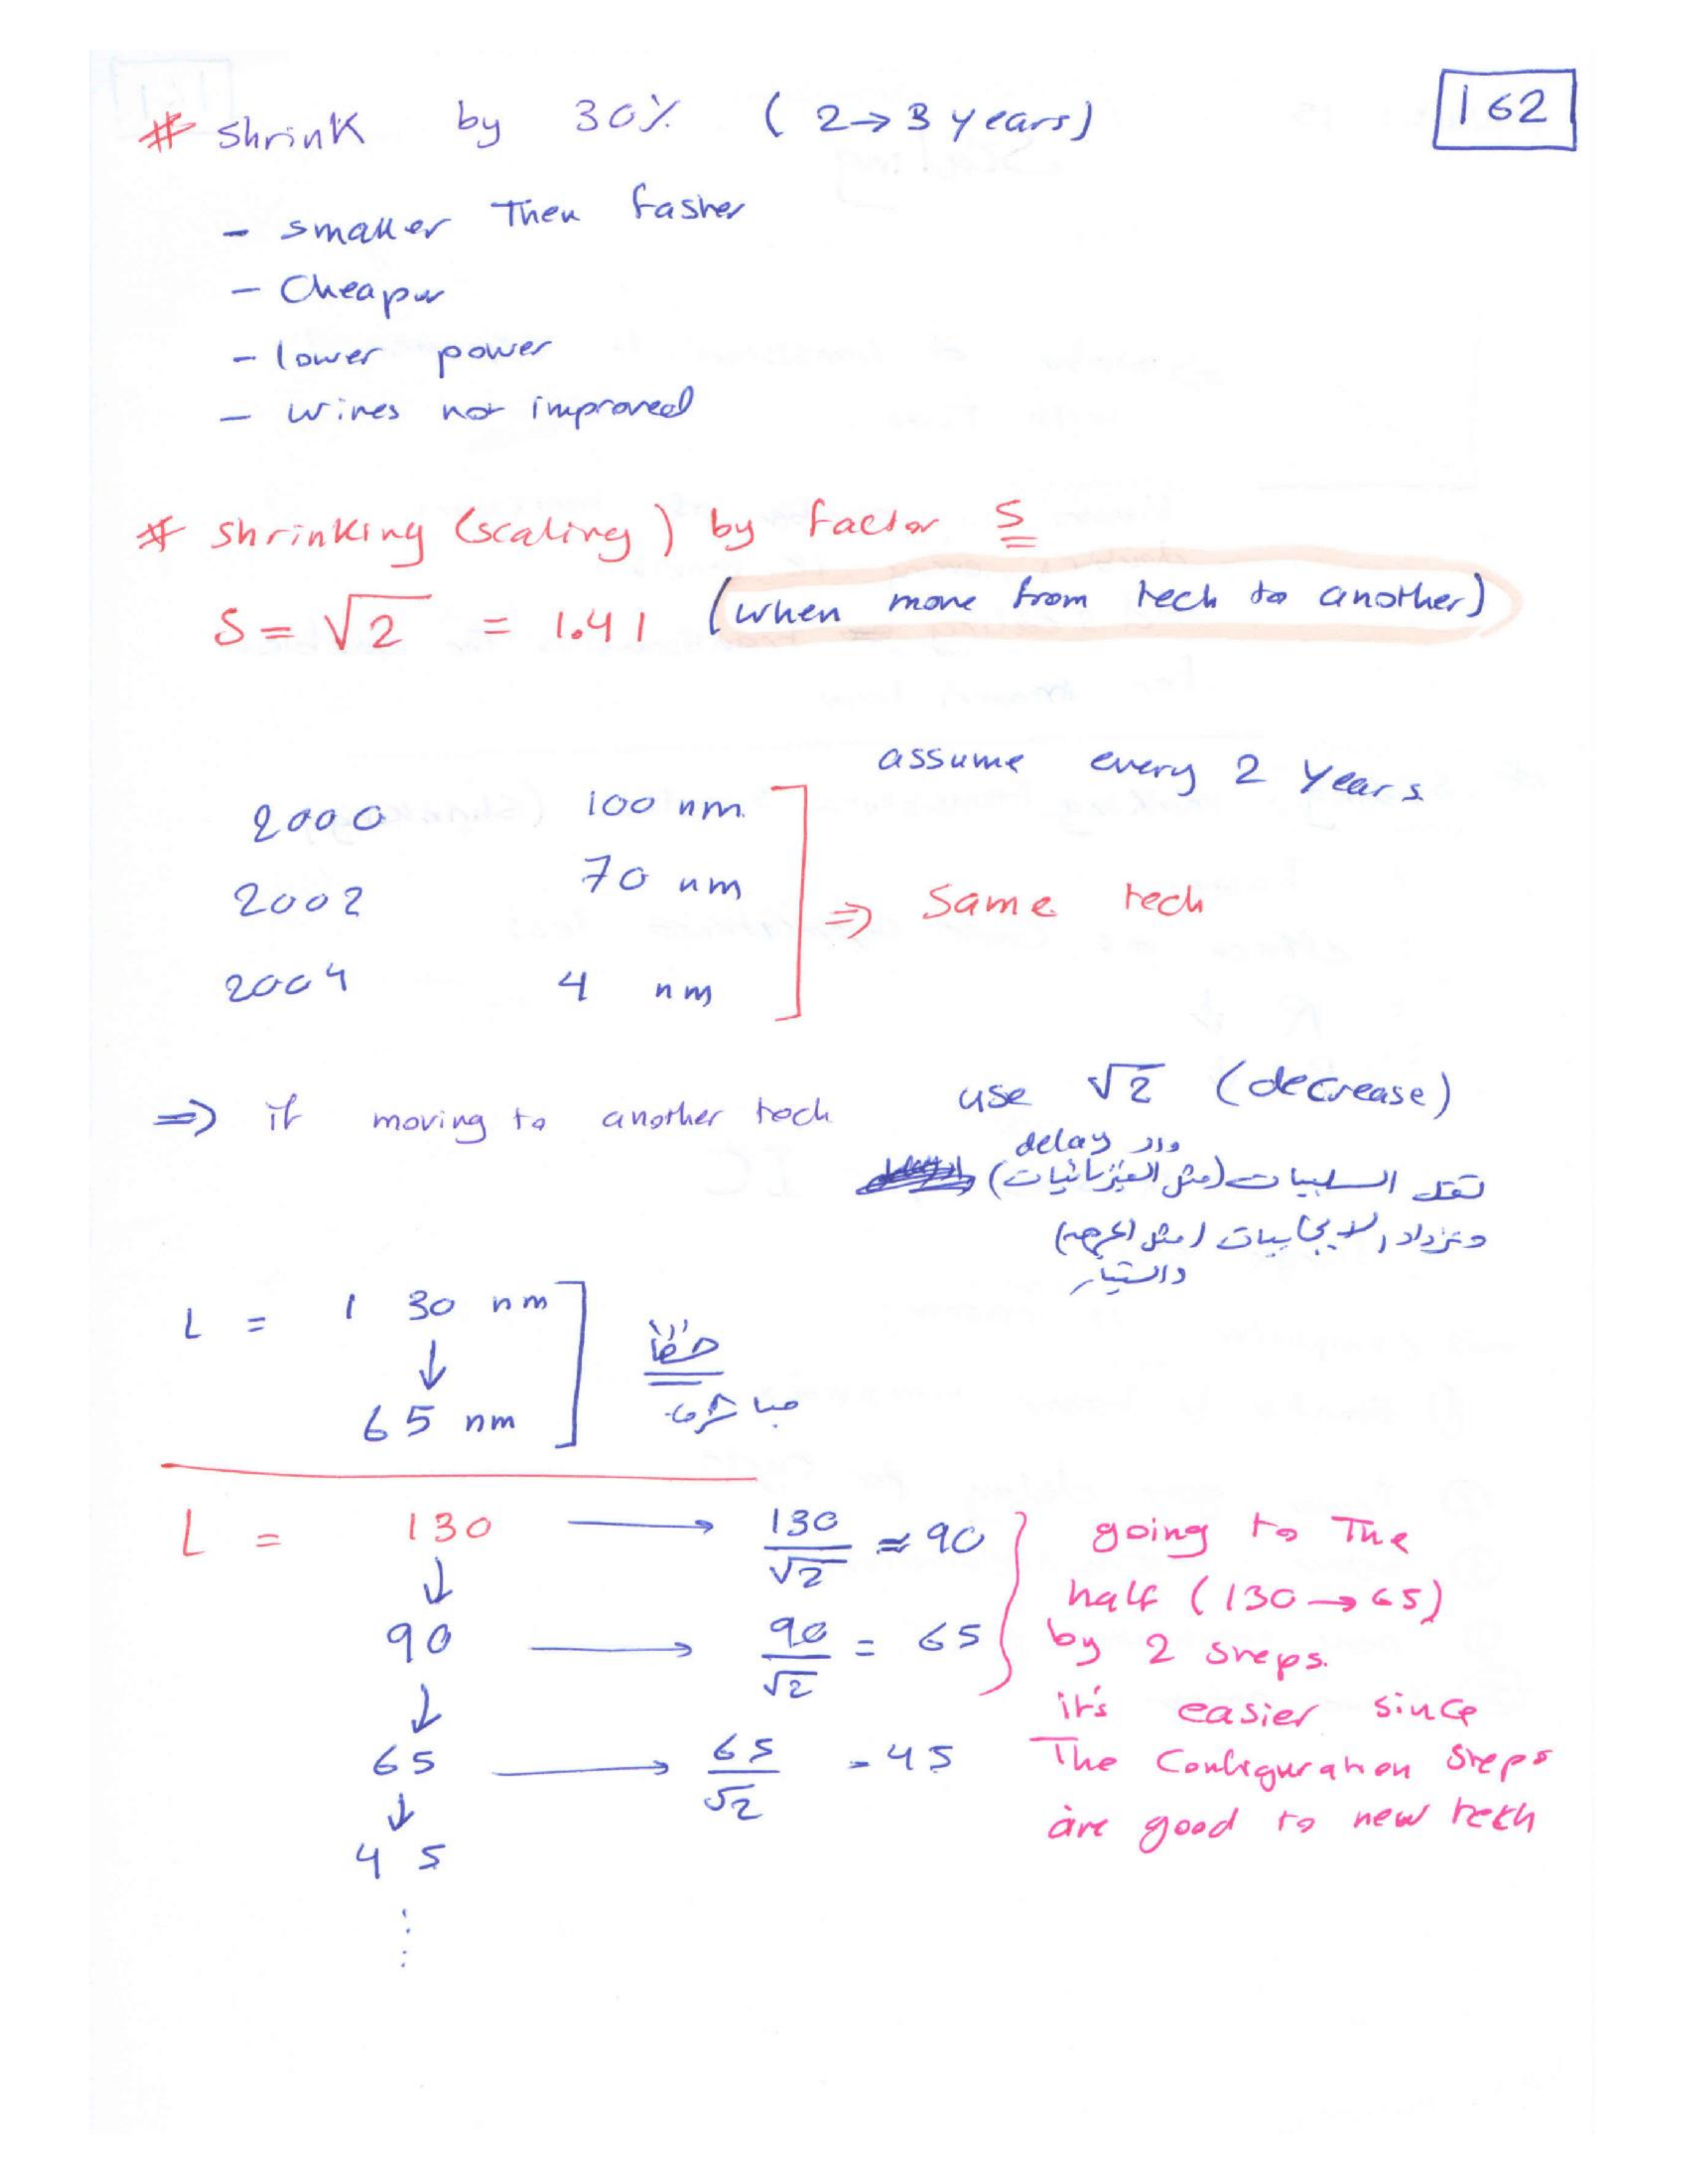 162
# Shrink by 30% (2→3 years)
- smaller Then faster
- Cheaper
- lower power
- wires not improved
# shrinking (scaling) by factor S
S = √2 = 1.41 (when move from tech to another)
assume every 2 years
2000 100 nm
2002 70 nm
2004 4 nm
⇒ Same tech
⇒ if moving to another tech use √2 (decrease)
delay
تقل السلبيات (مثل
وتزداد الايجابيات (مثل
والتيار
L = 130 nm
↓
65 nm
خطأ
مباشرة
L = 130 → 130/√2 ≈ 90
↓
90 → 90/√2 = 65
↓
65 → 65/√2 = 45
↓
45
⋮
going to The
half (130→65)
by 2 steps.
it's easier since
The Configuration steps
are good to new tech